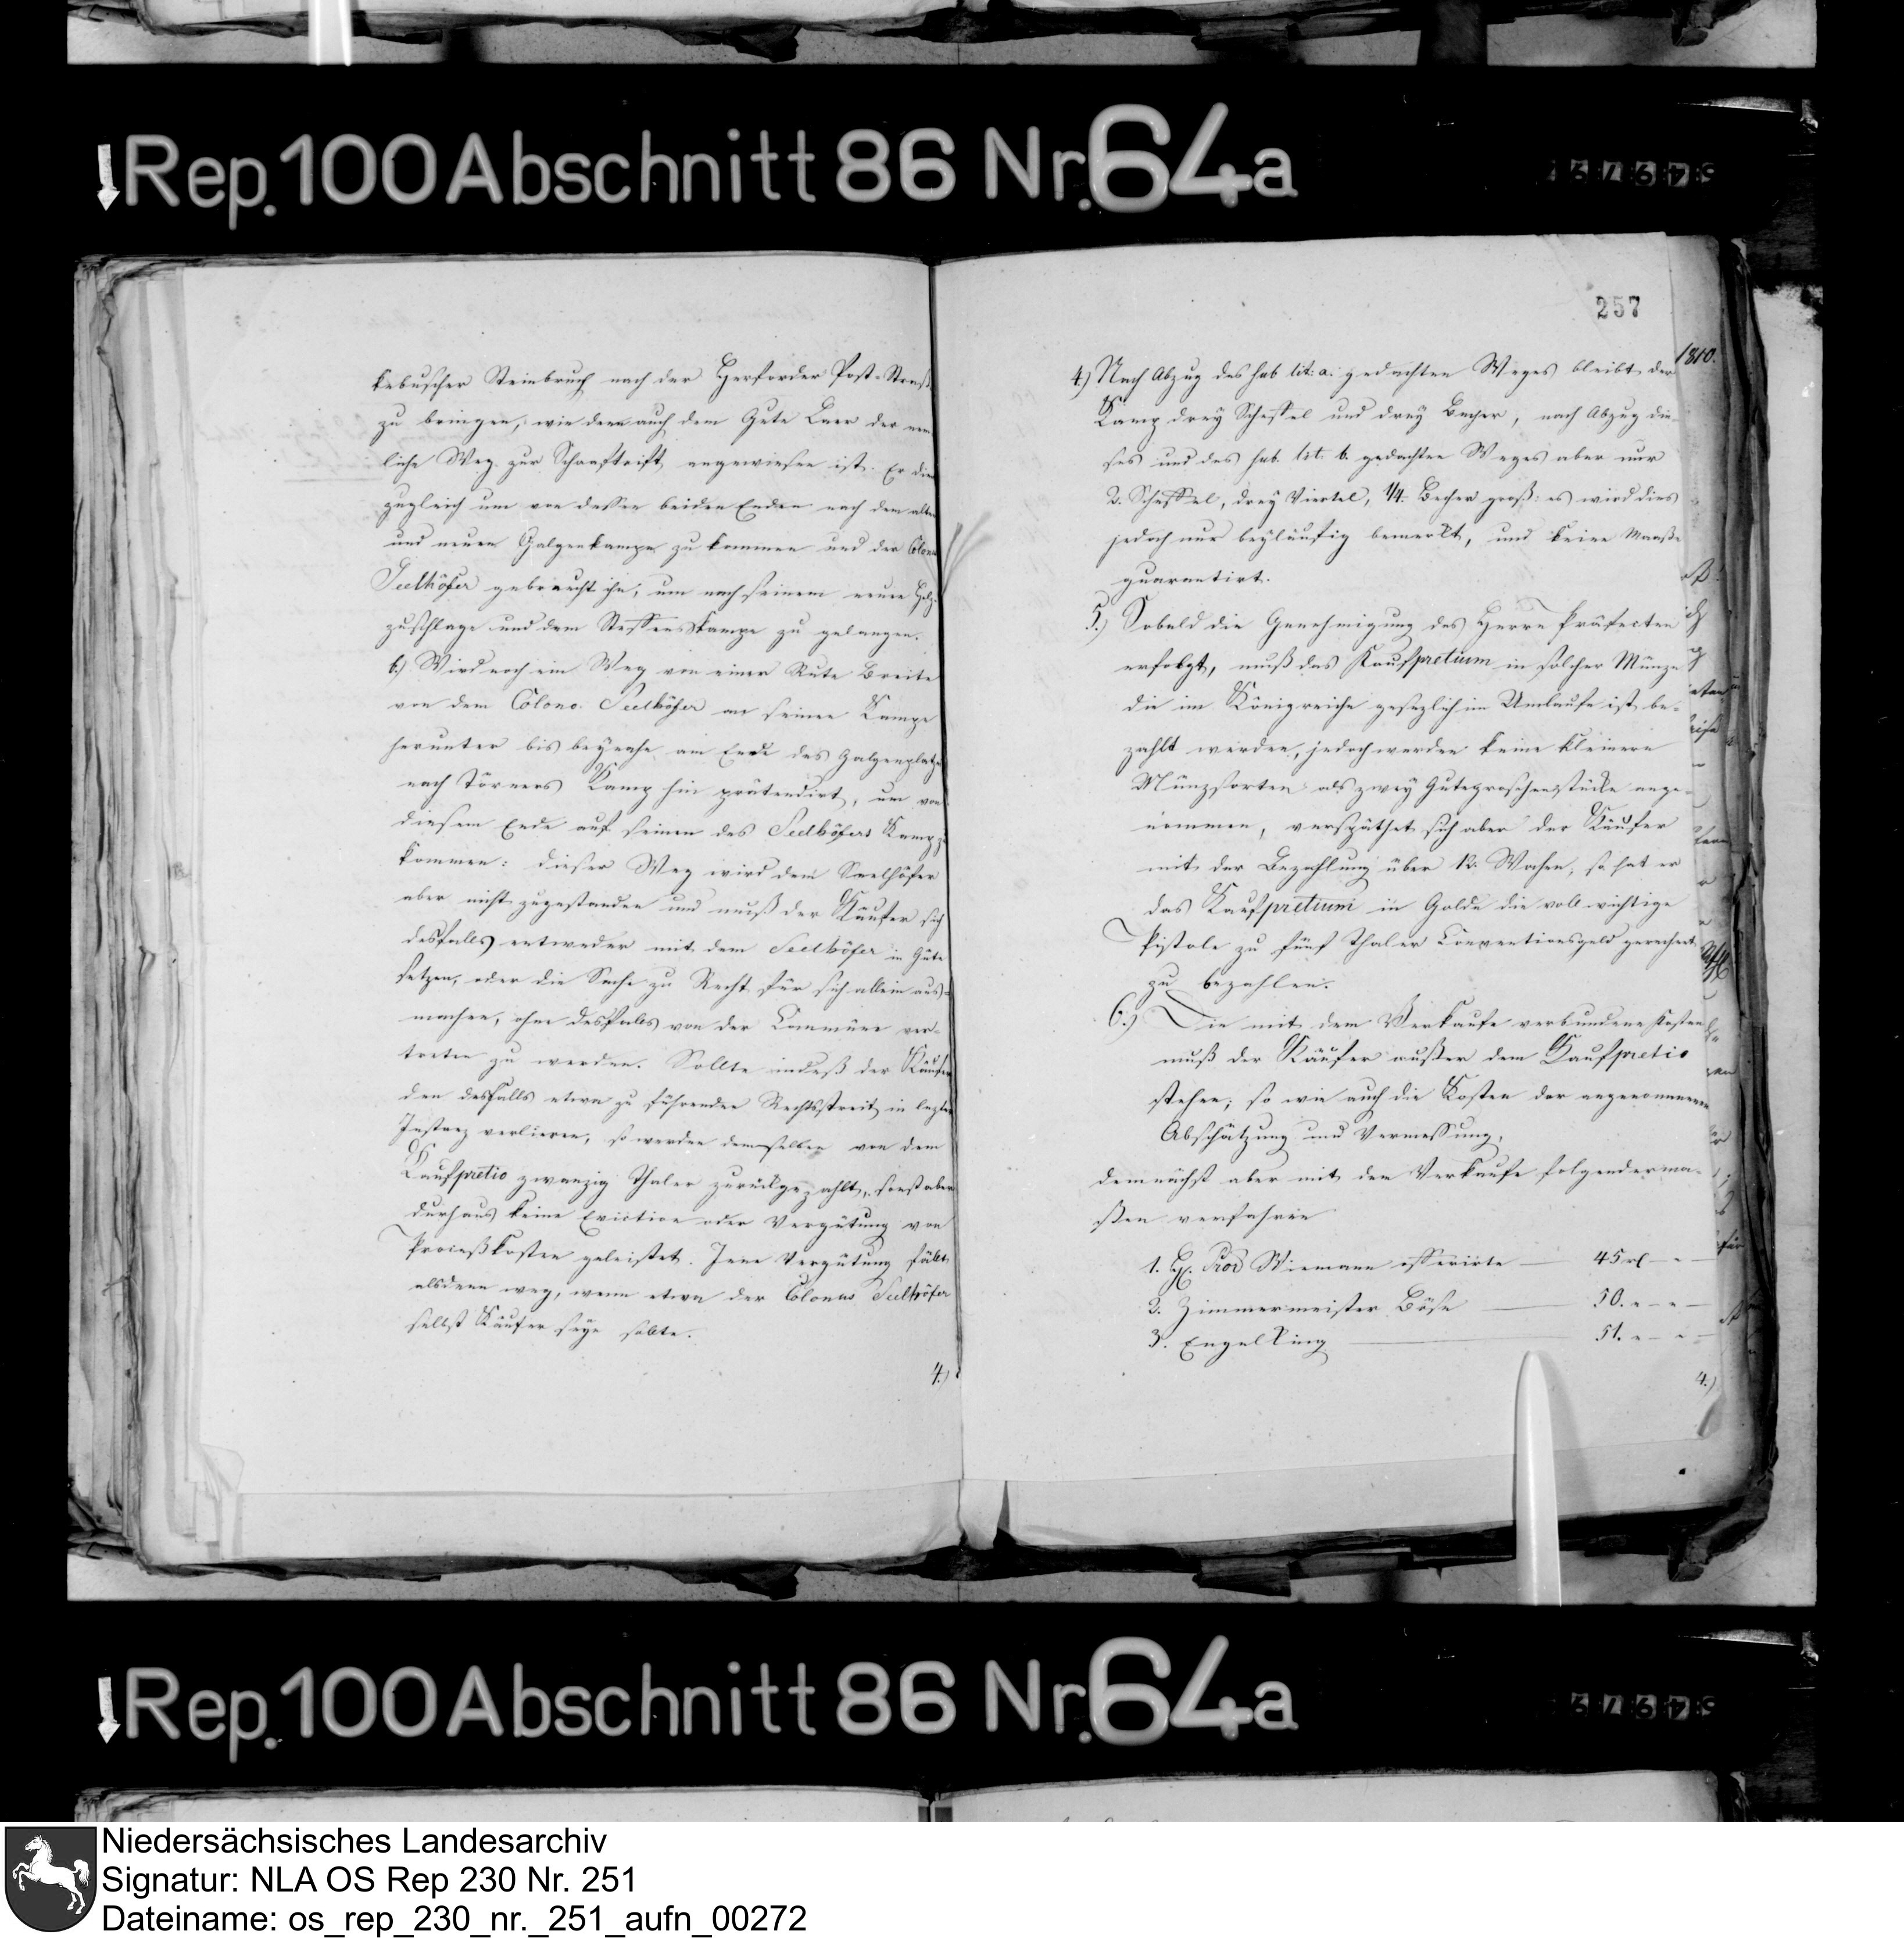 Rep. 100 Abschnitt 86 Nr. 64a
kebuscher Steinbruch nach der Herforder Post-Straß
zu bringen, wie denn auch dem Gute Laer der nem-
liche Weg zur Schaaftrift angewiesen ist. Er dien
zugleich um von dessen beiden Enden nach dem alten
und neuen Galgenkampe zu kommen und der Colonus
Seelhöfer gebraucht ihn, um nach seinem neuen Holz-
zuschlage und dem Steffenskampe zu gelangen.
b.) Wird noch ein Weg von einer Rute Breite
von dem Colono Seelhöfer an seinen Kampe
herunter bis beynahe am Ende des Galgenplatzes
nach Törners Kamp hin prätendirt, um von
diesem Ende auf seinen des Seelhöfers Kamp zu
kommen: dieser Weg wird dem Seelhöfer
aber nicht zugestanden und muß der Käufer sich
desfalls entweder mit dem Seelhöfer in Güte
setzen, oder die Sache zu Recht für sich allein aus-
machen, ohne desfalls von der Commüne ver-
treten zu werden. Sollte indeß der Käufer
den desfalls etwa zu führenden Rechtsstreit in lezter
Instanz verlieren, so werden demselben von dem
Kaufpretio zwanzig Thaler zurückgezahlt, sonst aber
durchaus keine Eviction oder Vergütung von
Proceßkosten geleistet. Jene Vergütung fällt
alsdenn weg, wenn etwa der Colonus Seelhöfer
selbst Käufer seyn sollte.
4.)
257
1810.
4.) Nach Abzug des sub lit: a. gedachten Weges bleibt der
Kamp drey Scheffel und drey Becher, nach Abzug die-
ses und des sub. lit. b. gedachten Weges aber nur
2. Scheffel, drey Viertel, 1/4. Becher groß: es wird dies
jedoch nur beyläufig bemerkt, und keine Maaße
guarantirt.
5.) Sobald die Genehmigung des Herrn Präfecten
erfolgt, muß das Kaufpretium in solcher Münze
die im Königreiche gesezlich im Umlaufe ist be-
zahlt werden, jedoch werden keine kleinere
Münzsorten als zwey Gutegroschenstücke ange-
nommen, verspäthet sich aber der Käufer
mit der Bezahlung über 12. Wochen, so hat er
das Kaufpretium in Golde die voll wichtige
Pistole zu fünf Thaler Conventionsgeld gerechnet
zu bezahlen.
6.) Die mit dem Verkaufe verbundene Kosten
muß der Käufer außer dem Kaufpretio
stehen; so wie auch die Kosten der angenommenen
Abschätzung und Vermessung,
demnächst aber mit dem Verkaufe folgenderma-
ßen verfahren
1. H. Wiemann offerirte — 45 rl — " —
2. Zimmermeister Böse — 50. " — " —
3. Engelking — 51. " — " —
4.)
Rep. 100 Abschnitt 86 Nr. 64a
Niedersächsisches Landesarchiv
Signatur: NLA OS Rep 230 Nr. 251
Dateiname: os_rep_230_nr._251_aufn_00272